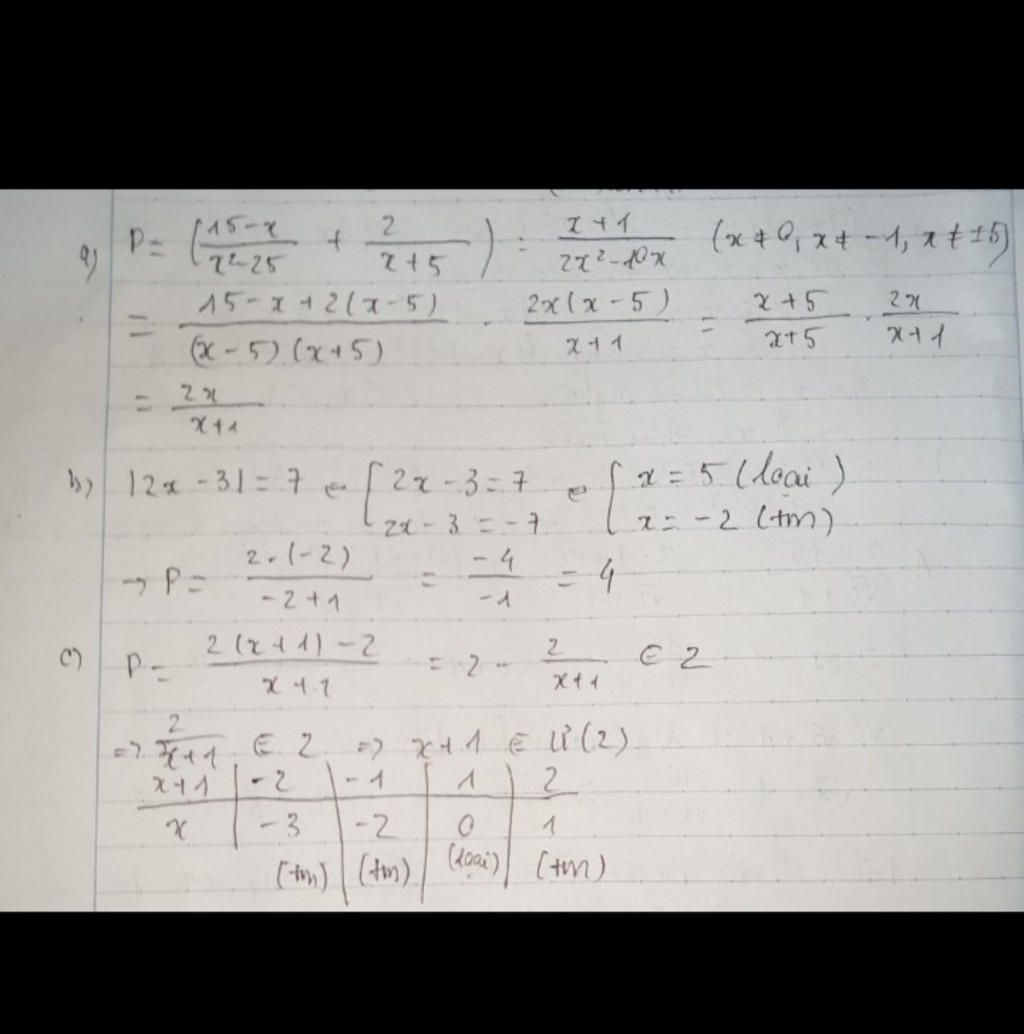 a) P = (15-x / x²-25 + 2 / x+5) : x+1 / 2x²-10x (x ≠ 0, x ≠ -1, x ≠ ±5)
= 15-x+2(x-5) / (x-5)(x+5) . 2x(x-5) / x+1 = x+5 / x+5 . 2x / x+1
= 2x / x+1
b) |2x-3| = 7 ⇔ [ 2x-3 = 7 ⇔ [ x = 5 (loại)
2x-3 = -7 x = -2 (tm)
→ P = 2.(-2) / -2+1 = -4 / -1 = 4
c) P = 2(x+1)-2 / x+1 = 2 - 2 / x+1 ∈ Z
=> 2 / x+1 ∈ Z => x+1 ∈ Ư(2)
x+1 | -2 | -1 | 1 | 2
x | -3 | -2 | 0 | 1
(tm) | (tm) | (loại) | (tm)